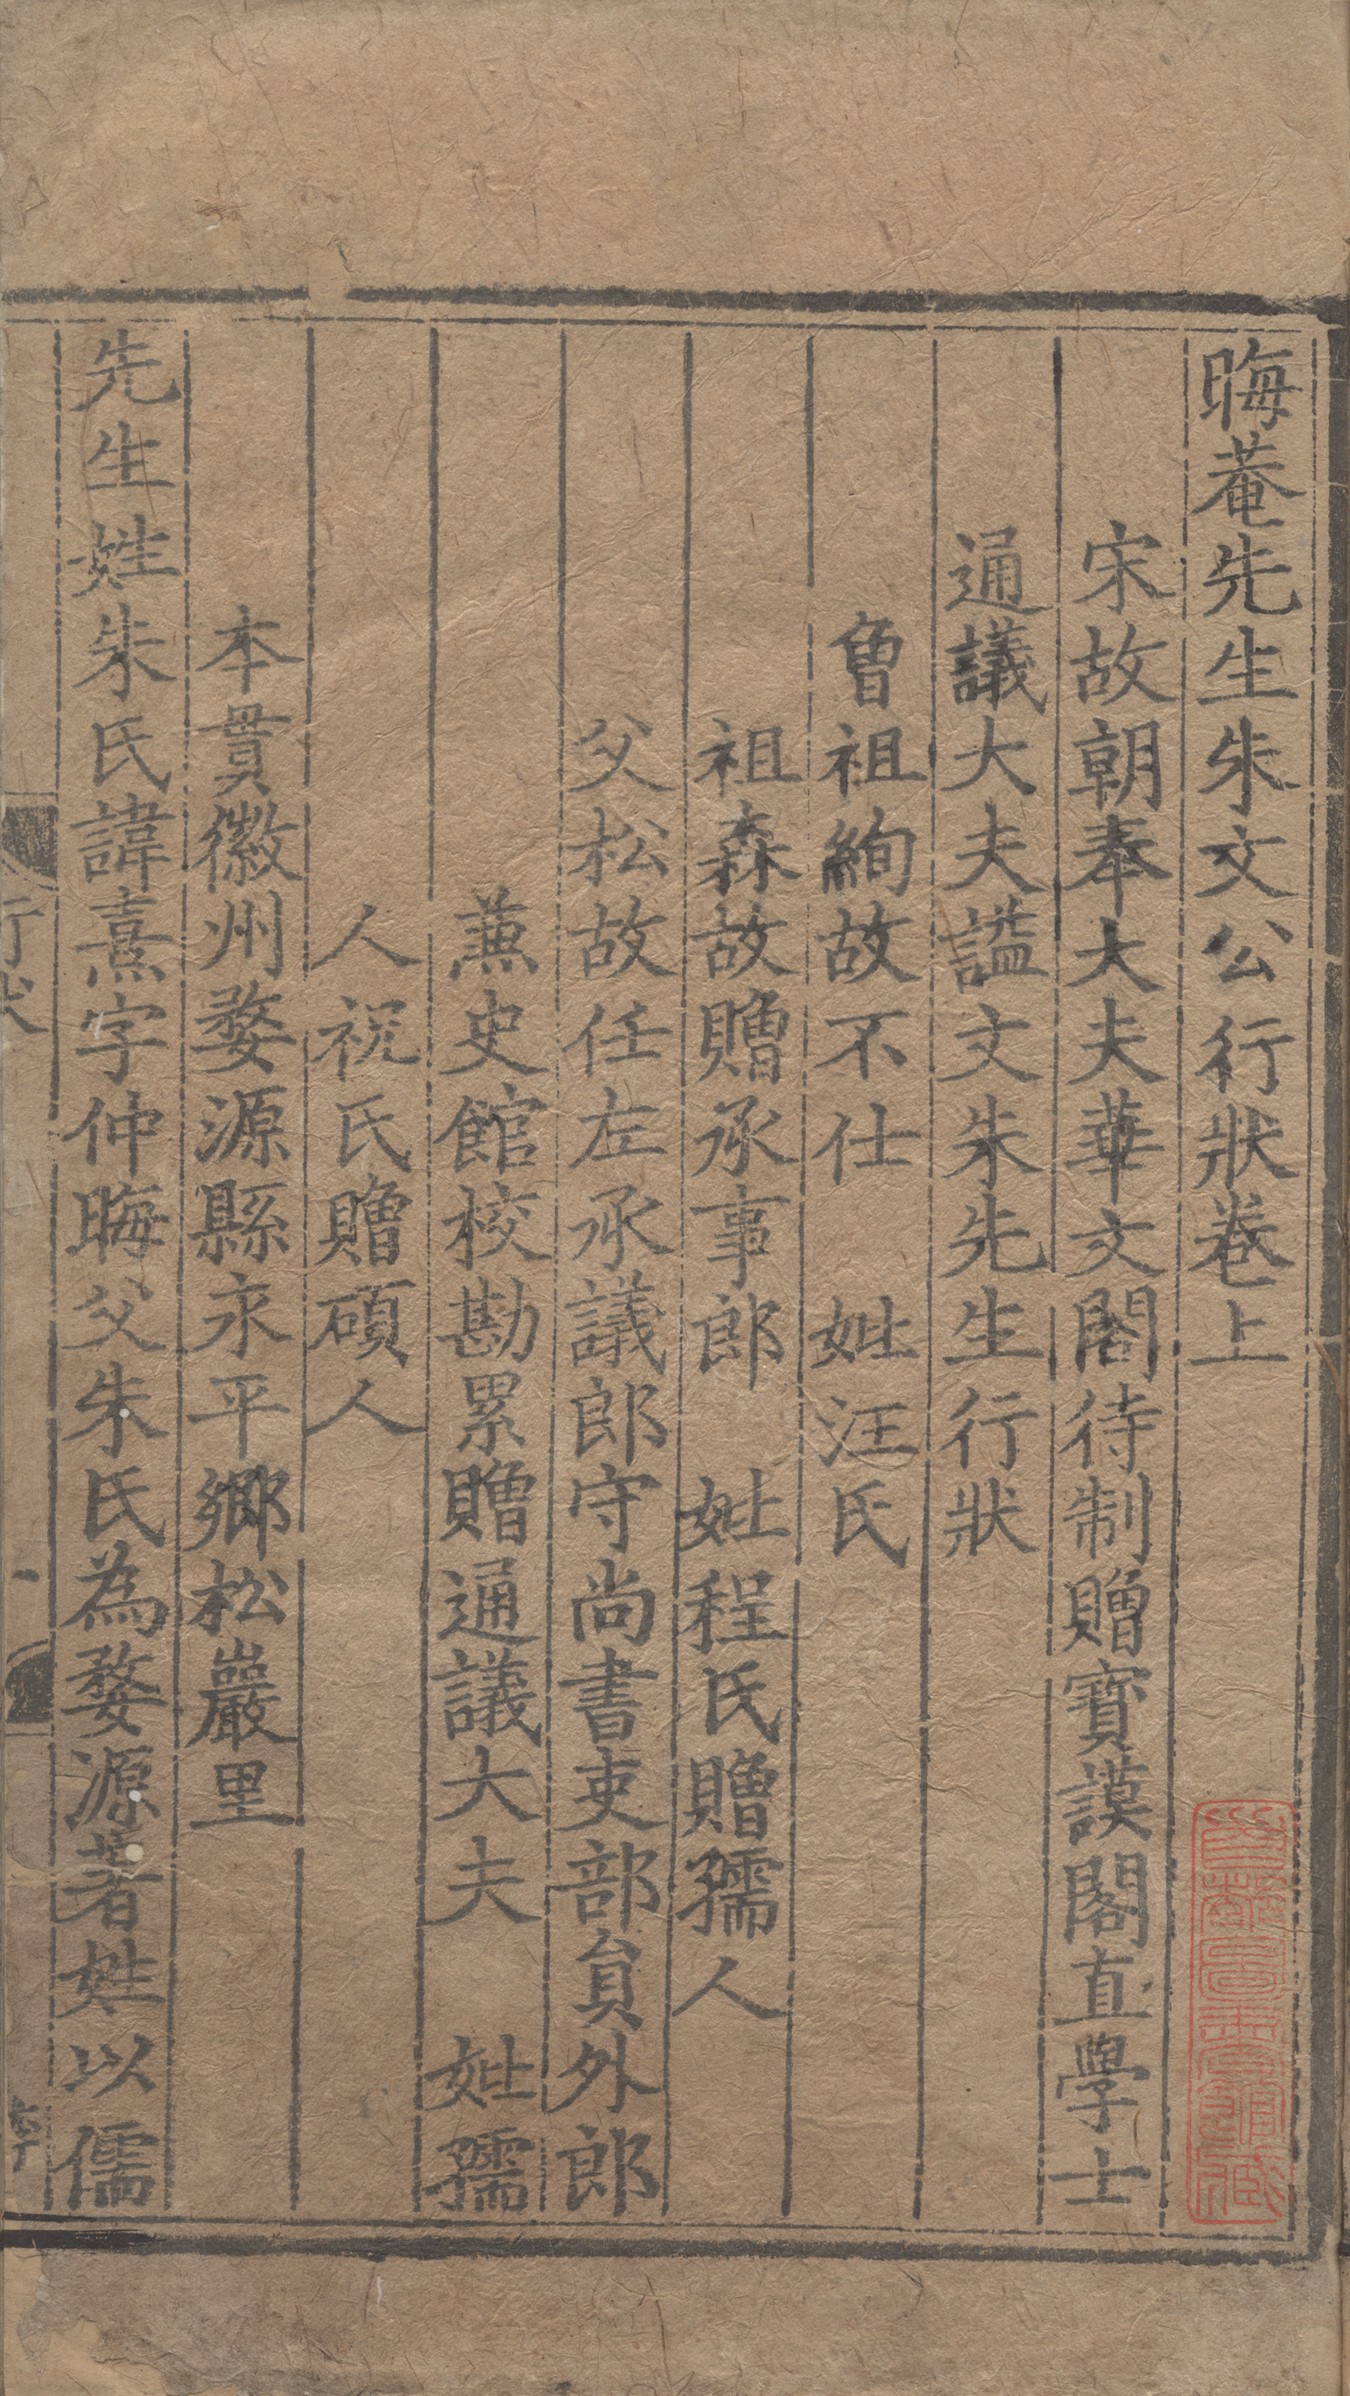 晦菴先生朱文公行狀卷上
宋故朝奉大夫華文閣待制贈寳謨閣直學士
通議大夫謚文朱先生行狀
曾祖絢故不仕　妣汪氏
祖森故贈承事郎　妣程氏贈孺人
父松故任左承議郎守尚書吏部貟外郎
兼史館校勘累贈通議大夫　妣孺
人祝氏贈碩人
本貫徽州婺源縣永平鄉松巖里
先生姓朱氏諱熹字仲晦父朱氏為婺源著姓以儒
行状